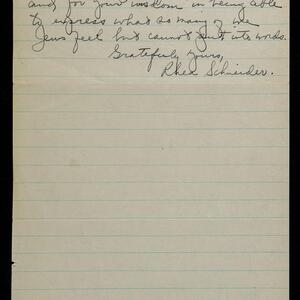 and for your wisdom in being able
to express what so many of we
Jews feel but cannot put into words.
Gratefully yours,
Rhea Schneider.